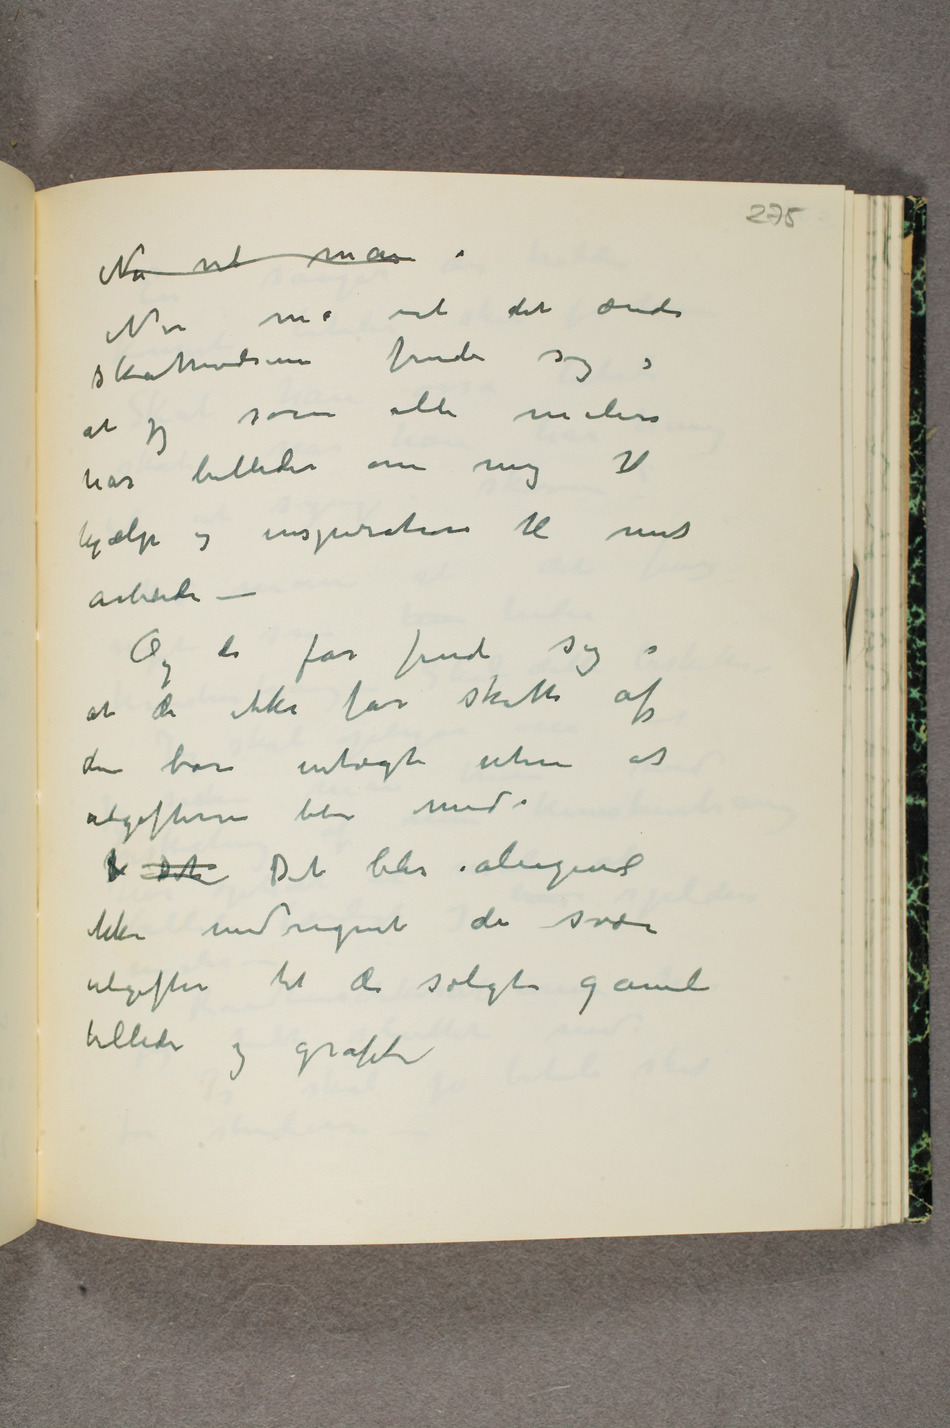 275
Nu vil man i
Nu må vel det ende
skattevæsenen finde sig i
at jeg som alle malere
har billeder om mig til
hjælp og inspiration til mit
arbeide —
Og de får finde sig i
at de ikke får skatte af
den bare indtægt uten at
utgifterne blir med.
Det Det blir alligevel
ikke medregnet de svære
utgifter til de solgte gamle
billeder og grafik